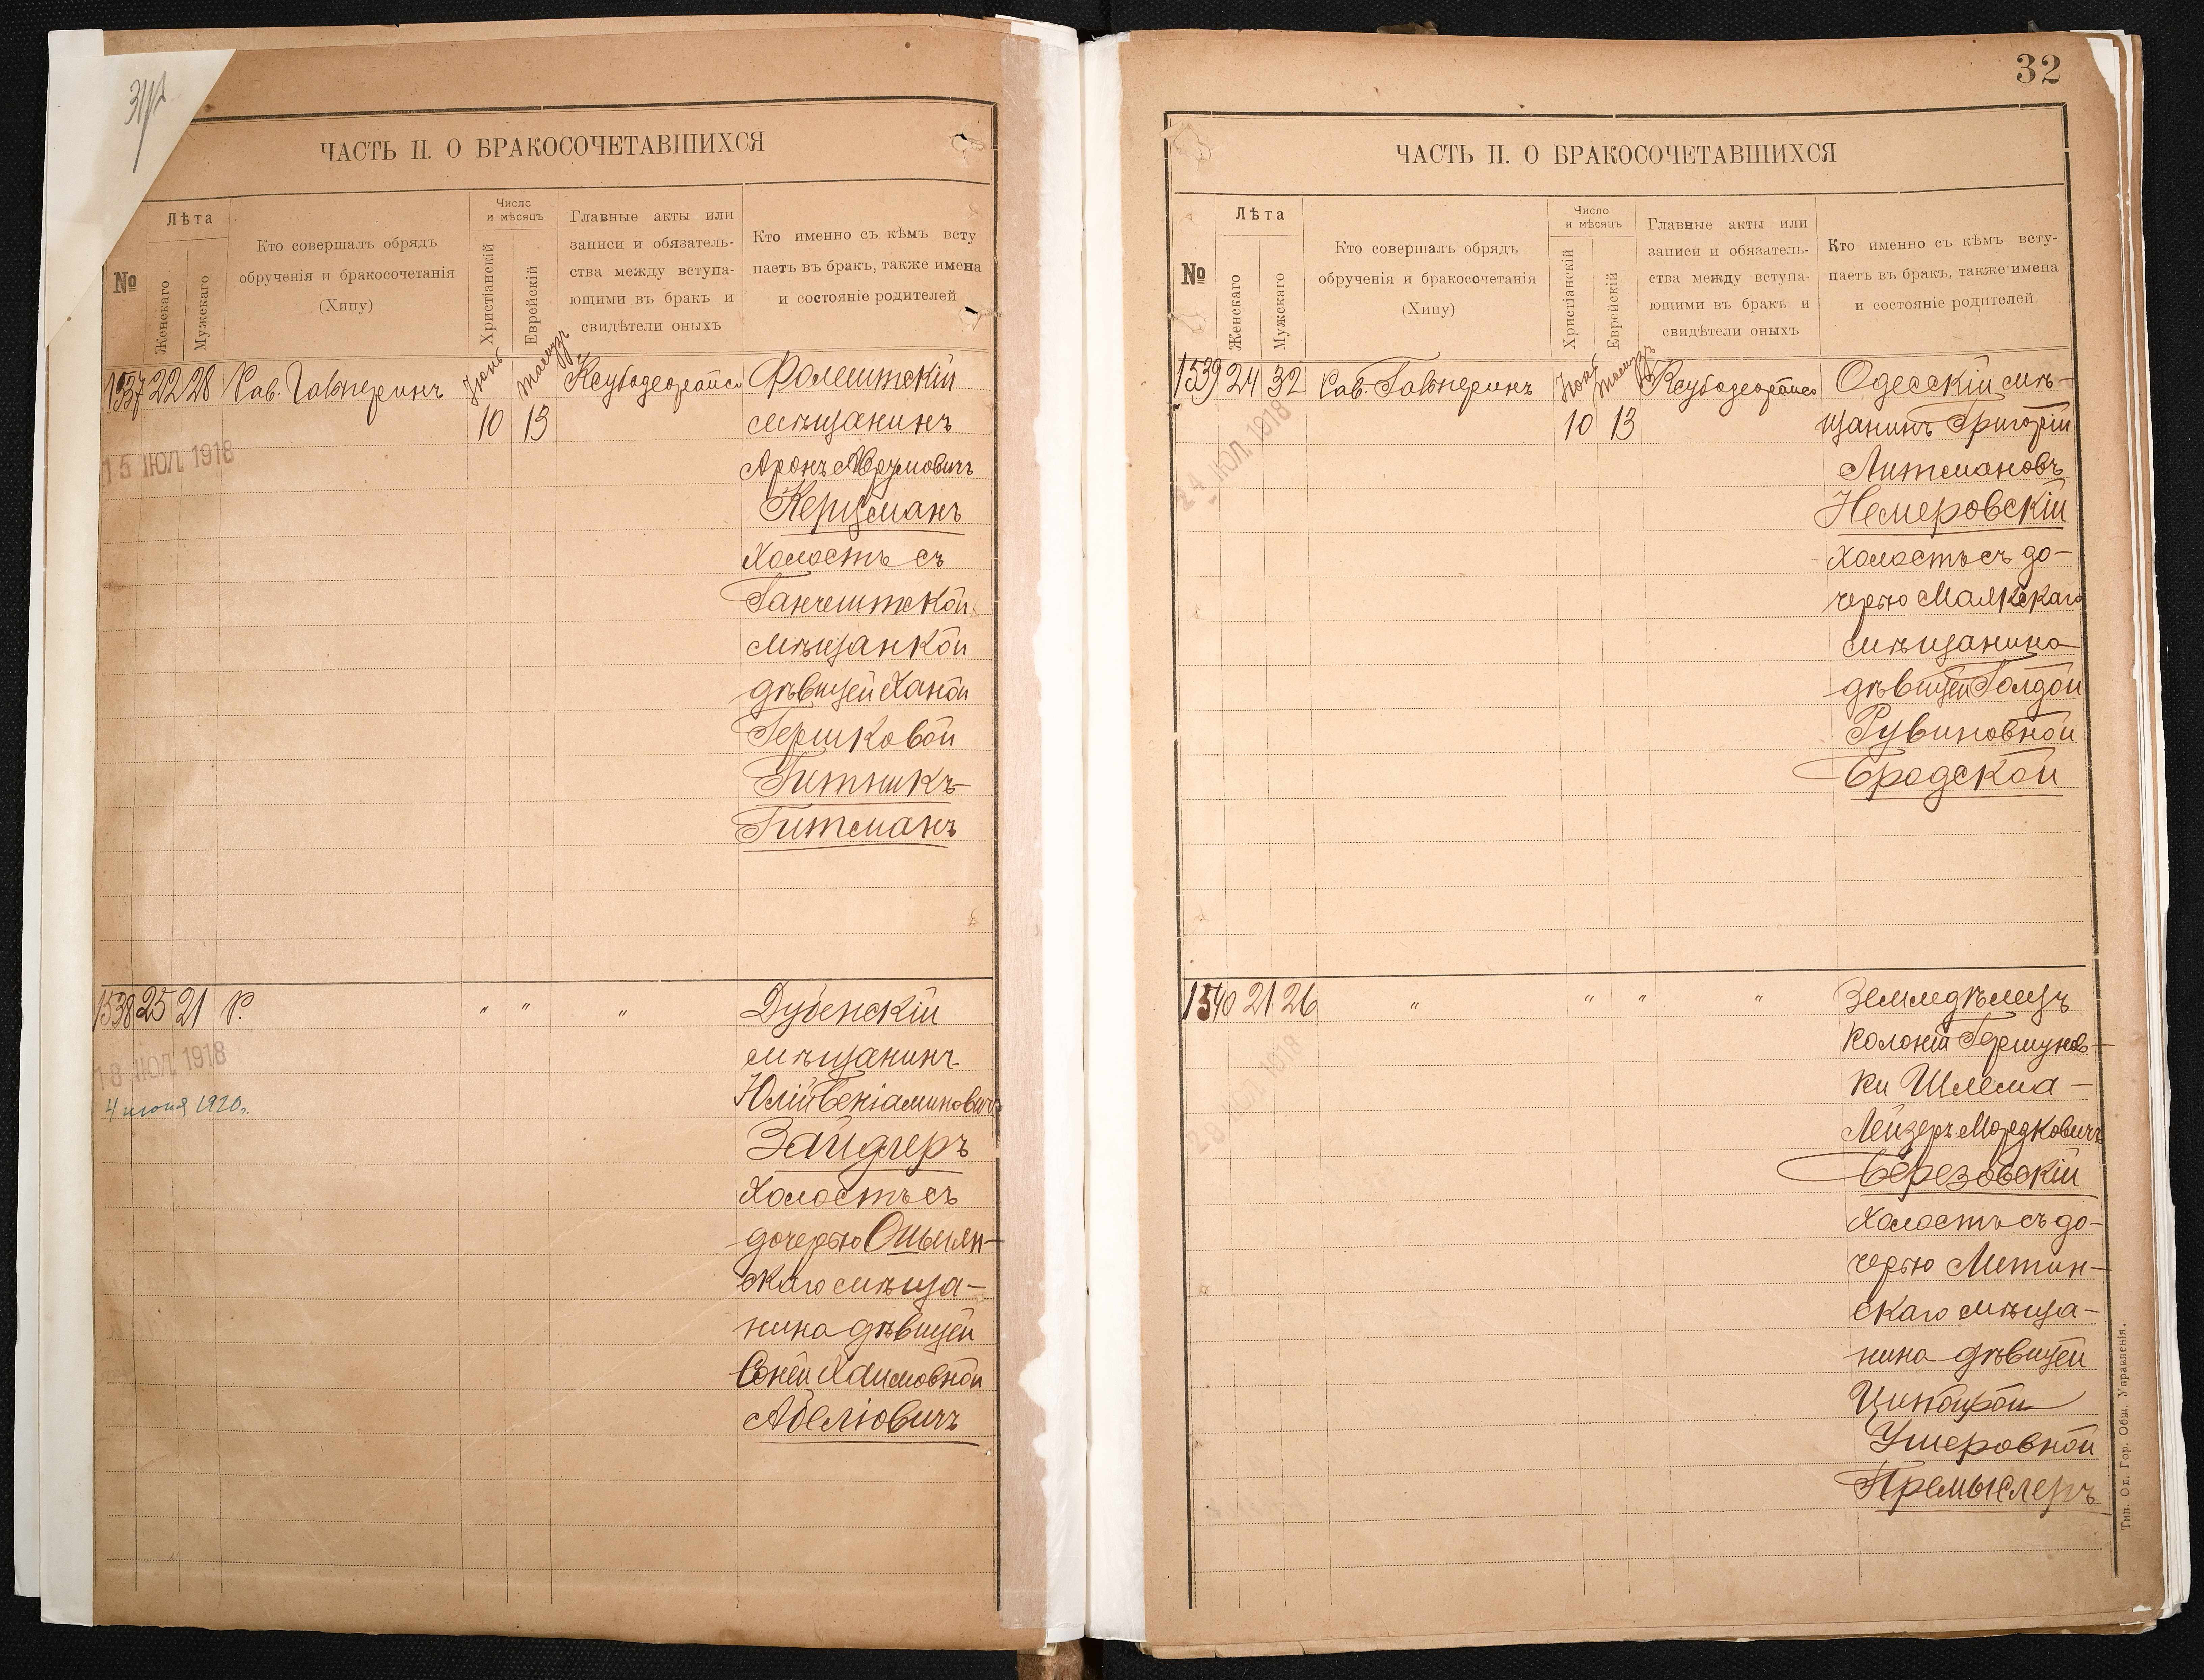 ЧАСТЬ II. О БРАКОСОЧЕТАВШИХСЯ
№
Лѣта
Женскаго
Мужскаго
Кто совершалъ обрядъ
обрученія и бракосочетанія
(Хипу)
Число
и мѣсяцъ
Христіанскій
Еврейскій
Главные акты или
записи и обязатель-
ства между вступа-
ющими въ бракъ и
свидѣтели оныхъ
Кто именно съ кѣмъ всту
паетъ въ бракъ, также имена
и состояніе родителей
1537 22 28 Рав. Гальперинъ
10 13
15 ІЮЛ. 1918
Фолештскій
мѣщанинъ
Аронъ Аврумовичъ
Керцманъ
холостъ съ
Ганчештской
мѣщанкой
дѣвицей Ханой
Гершковой
Гитникъ-
Гитманъ
1538 25 21 Р. " " "
18 ІЮЛ. 1918
4 июня 1920г.
Дубенскій
мѣщанинъ
Юлій Беніаминовичъ
Зайдлеръ
холостъ съ
дочерью Ошмян-
скаго мѣща-
нина дѣвицей
Соней Хаимовной
Абеліовичъ
32
ЧАСТЬ II. О БРАКОСОЧЕТАВШИХСЯ
№
Лѣта
Женскаго
Мужскаго
Кто совершалъ обрядъ
обрученія и бракосочетанія
(Хипу)
Число
и мѣсяцъ
Христіанскій
Еврейскій
Главные акты или
записи и обязатель-
ства между вступа-
ющими въ бракъ и
свидѣтели оныхъ
Кто именно съ кѣмъ всту-
паетъ въ бракъ, также имена
и состояніе родителей
1539 24 32 Рав. Гальперинъ
10 13
24 ІЮЛ. 1918
Одесскій мѣ-
щанинъ Григорій
Литмановъ
Немеровскій
холостъ съ до-
черью Маякскаго
мѣщанина
дѣвицей Голдой
Рувиновной
Бродской
1540 21 26 " " " "
29 ІЮЛ. 1918
Земледѣлецъ
колоніи Гершунов-
ки Шлема-
Лейзеръ Мордковичъ
Березовскій
холостъ съ до-
черью Летин-
скаго мѣща-
нина дѣвицей
Ушеровной
Премыслеръ
Тип. Од. Гор. Общ. Управленія.